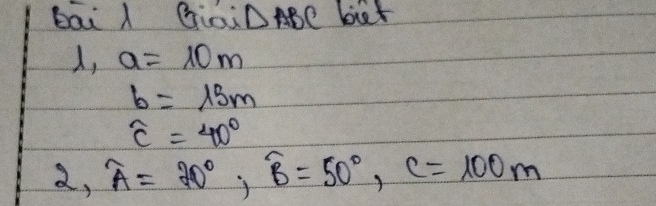 Bài 1 Giải Δ ABC biết
1, a = 10m
b = 15m
Ĉ = 40°
2, Â = 70° ; B̂ = 50°, c = 100m